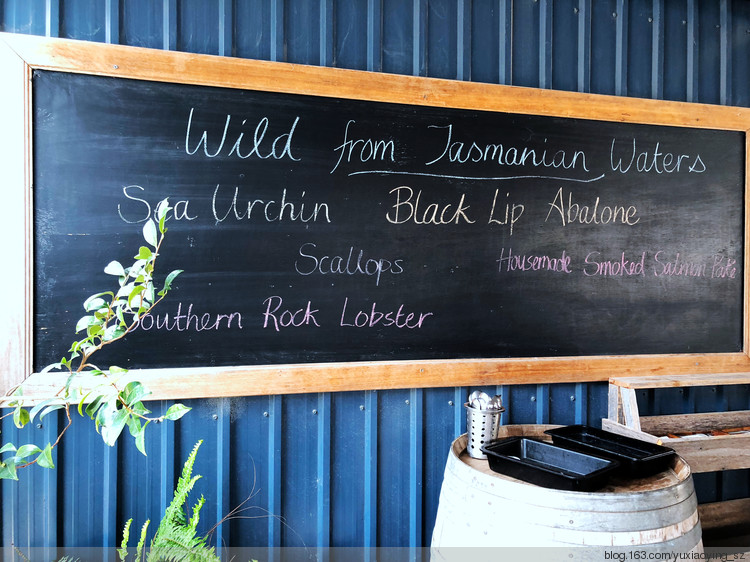 Wild from Tasmanian Waters
Sea Urchin Black Lip Abalone
Scallops Housemade Smoked Salmon Pate
Southern Rock Lobster
blog.163.com/yuxiaoying_sz